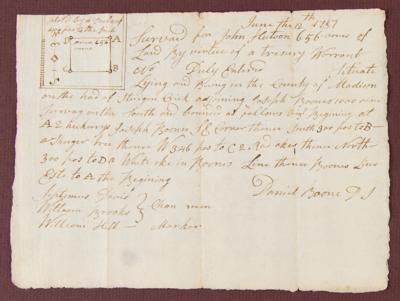 plotted by a scale of
400 pos to the Inch
B A
656
C D
June the 12th 1787
Surveyed for John Hutson 656 acres of
Land By virtue of a tresury Warrant
No Duly Entered Situate
Lying and Being in the County of Madison
on the head of Crick adjoining Joseph Boones
Survay on the South and bounded as follows viz Begining at
A 2 hickurys Joseph Boones SE Corner thence South 300 pos to B
a Shuger tree thence W 346 pos to C 2 Red okes thence North
300 pos to D a White oke in Boones Line thence Boones Line
Este to A the Begining
Daniel Boone D S
Septemus Davis
William Brooks } Chan men
William Hill — Marker